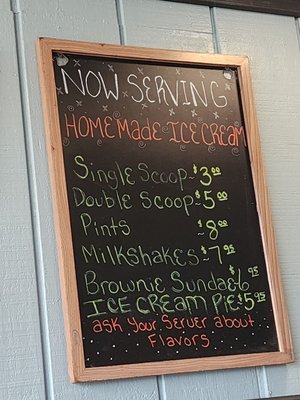 NOW SERVING
HOMEMADE ICE CREAM
Single Scoop~$3.00
Double Scoop~$5.00
Pints ~$8.00
Milkshakes~$7.95
Brownie Sundae $6.95
ICE CREAM PIE $5.95
ask Your Server about
Flavors